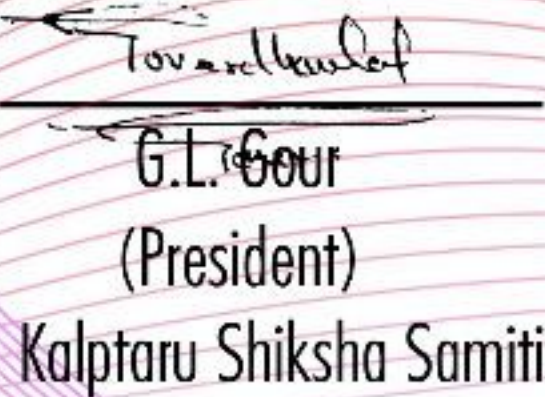 G.L. Gour
(President)
Kalptaru Shiksha Samiti